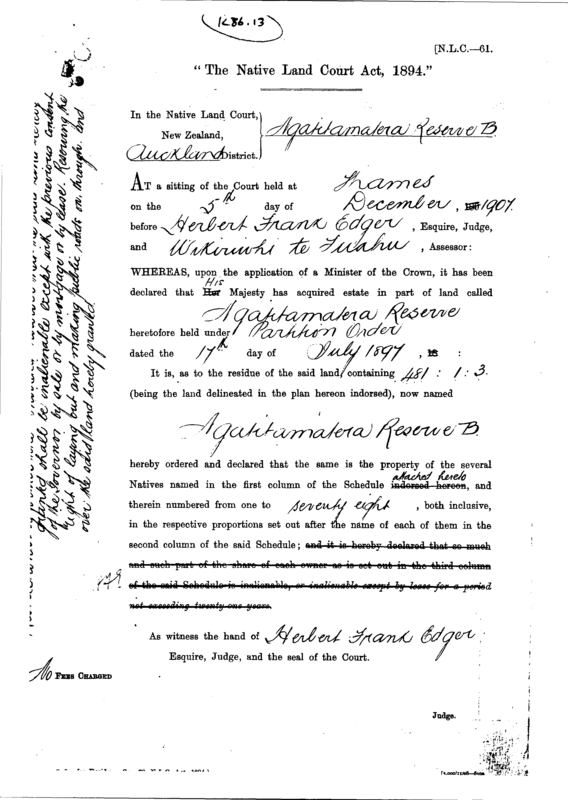 K86.13
[N.L.C.—61.
"The Native Land Court Act, 1894."
In the Native Land Court,
New Zealand,
Auckland District.
Ngatitamatera Reserve B.
AT a sitting of the Court held at Thames
on the 5th day of December, 1907.
before Herbert Frank Edger, Esquire, Judge,
and Wikiriwhi te Tuahu, Assessor:
WHEREAS, upon the application of a Minister of the Crown, it has been
His
declared that Her Majesty has acquired estate in part of land called
Ngatitamatera Reserve
heretofore held under Partition Order
dated the 17th day of July 1897, 18 :
It is, as to the residue of the said land, containing 481 : 1 : 3.
(being the land delineated in the plan hereon indorsed), now named
Ngatitamatera Reserve B.
hereby ordered and declared that the same is the property of the several
attached hereto
Natives named in the first column of the Schedule indorsed hereon, and
therein numbered from one to seventy eight, both inclusive,
in the respective proportions set out after the name of each of them in the
second column of the said Schedule; and it is hereby declared that so much
and such part of the share of each owner as is set out in the third column
of the said Schedule is inalienable, or inalienable except by lease for a period
not exceeding twenty-one years.
As witness the hand of Herbert Frank Edger
Esquire, Judge, and the seal of the Court.
No FEES CHARGED
Judge.
shall be inalienable except with the previous consent
of the Governor by sale or by mortgage or by lease. Reserving the
right of laying out and making public roads on, through and
over the said land hereby granted